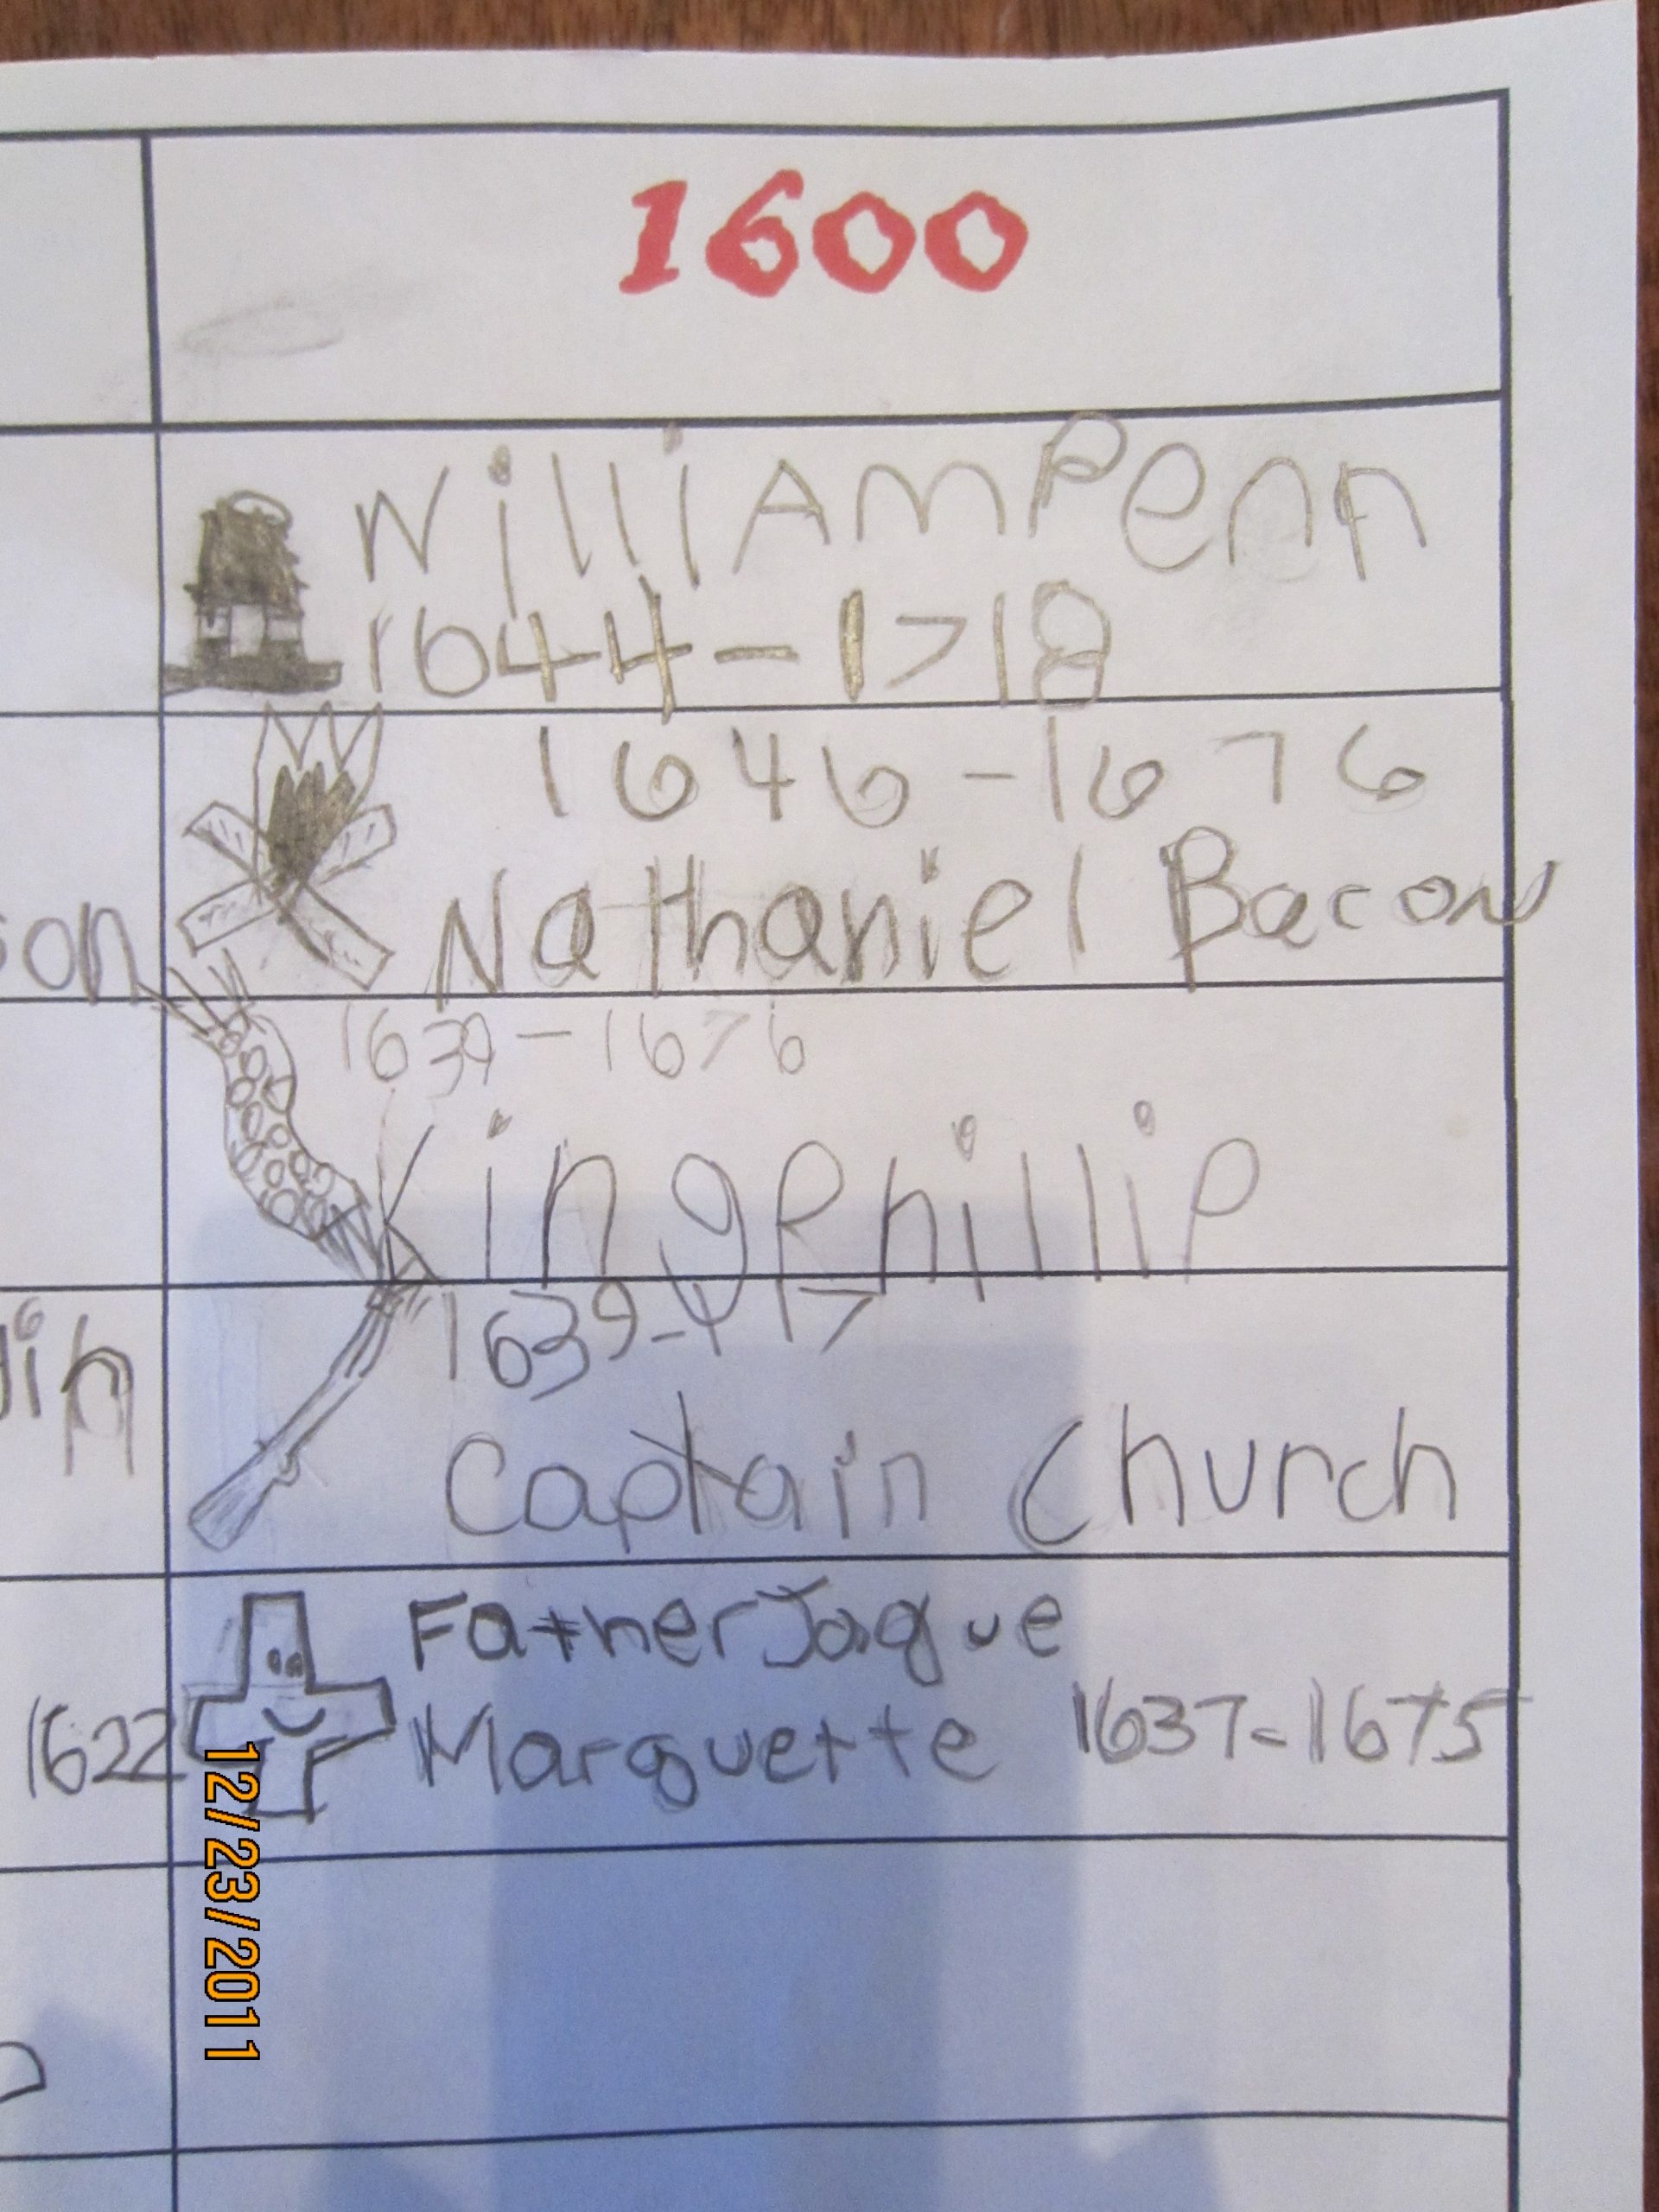 1600
William Penn
1644-1718
1646-1676
son Nathaniel Bacon
1639-1676
King Phillip
1639-1717
Captain Church
Father Jaque
1622 Marquette 1637-1675
12/23/2011